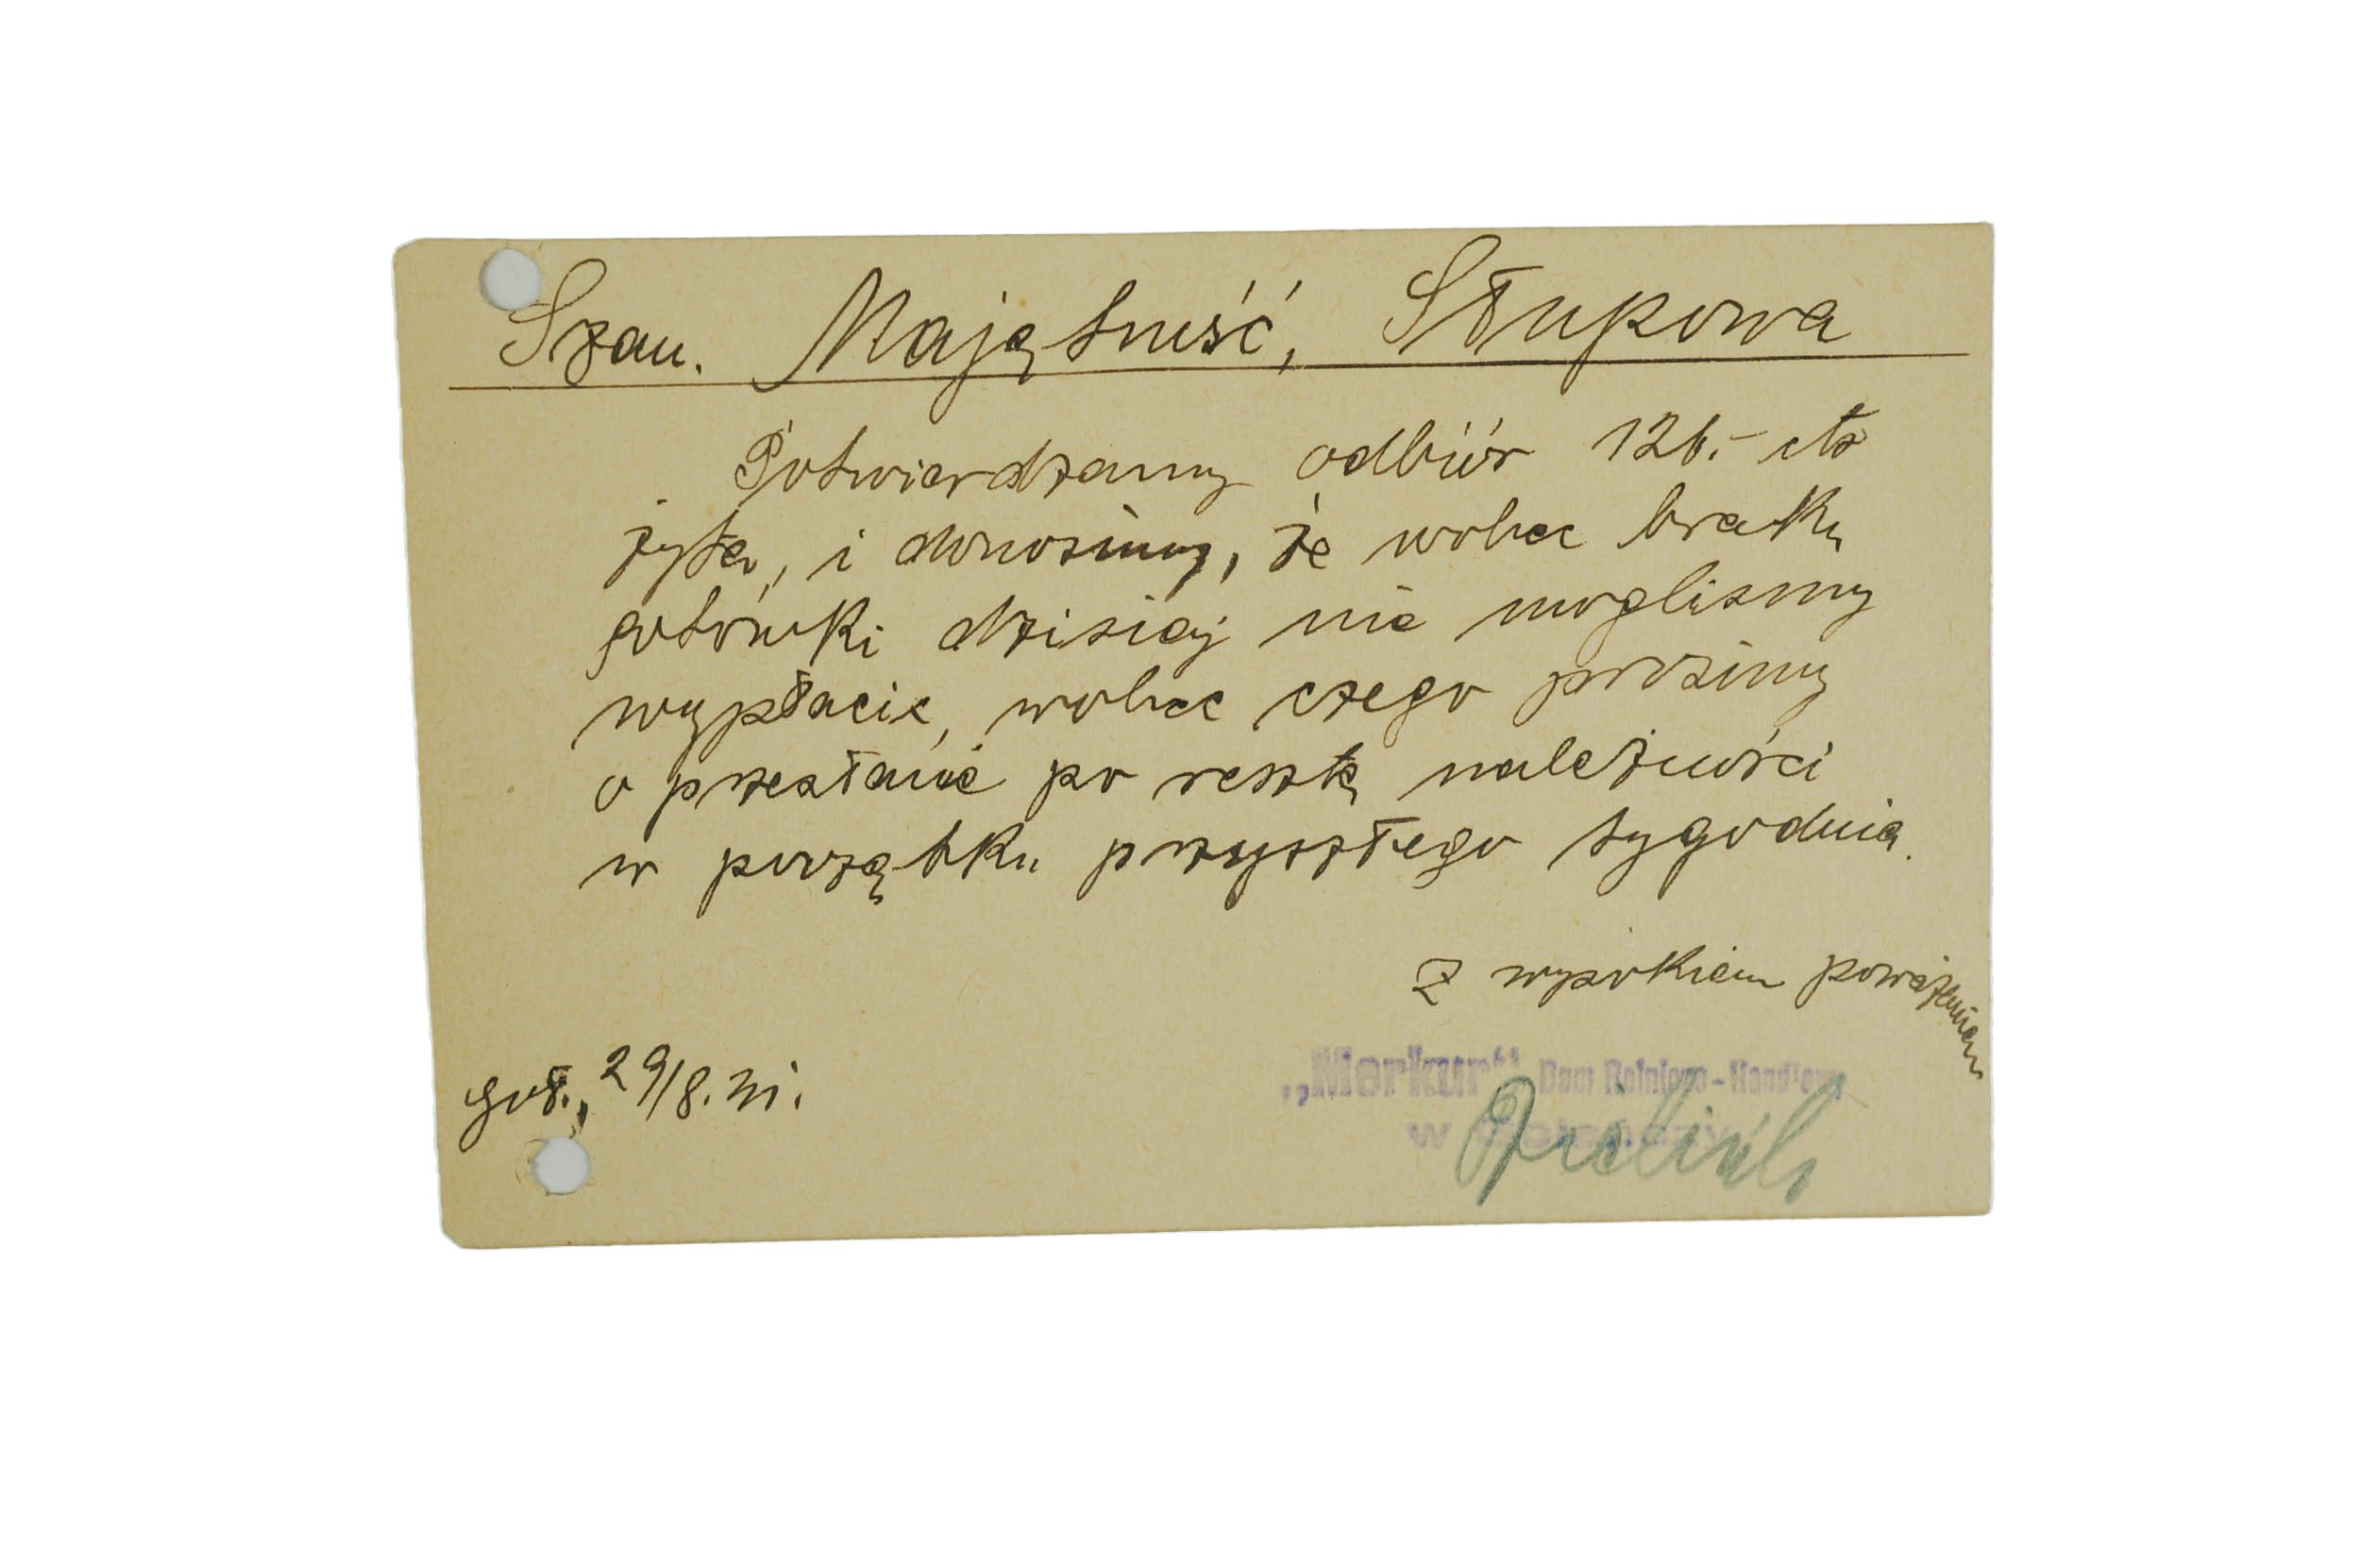 Szan. Majętność, Słupowa
Potwierdzamy odbiór 126.- ctr
żyta, i donosimy, że wobec braku
gotówki dzisiaj nie moglismy
wypłacic, wobec czego prosimy
o przesłanie po resztę należności
w porządku przyszłego tygodnia.
Z wysokiem poważaniem
"Merkur" Dom Rolniczo-Handlowy
w
goł., 29/8.31.